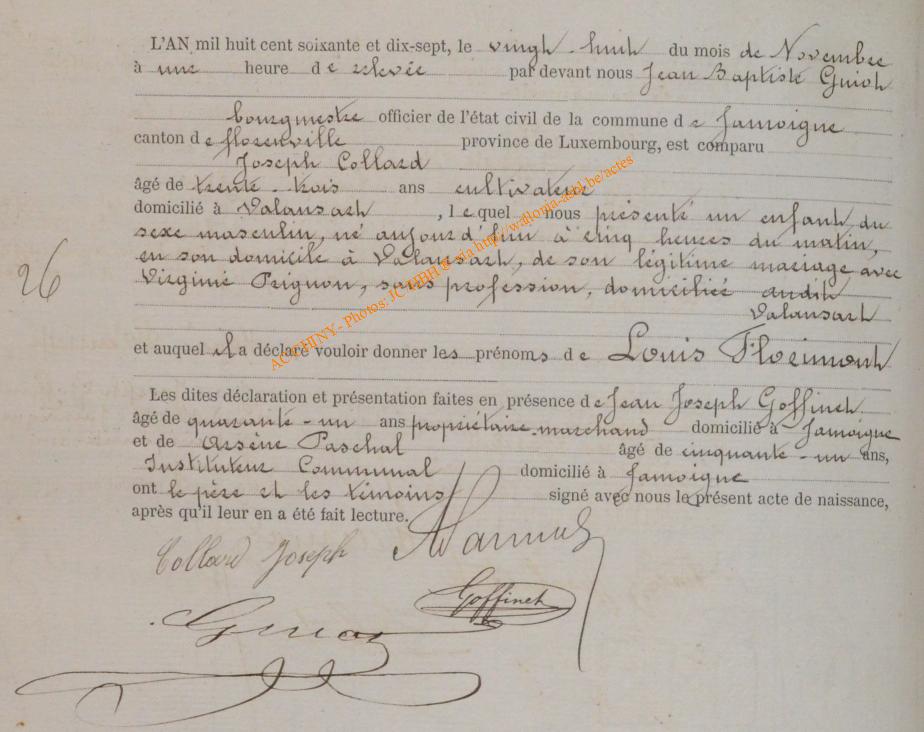 L'AN mil huit cent soixante et dix-sept, le vingt-huit du mois de Novembre
à une heure de relevée par devant nous Jean Baptiste Guiot
bourgmestre officier de l'état civil de la commune de Jamoigne
canton de florenville province de Luxembourg, est comparu
Joseph Collard
âgé de trente-trois ans cultivateur
domicilié à Valansart, lequel nous présenté un enfant du
sexe masculin, né aujourd'hui à cinq heures du matin,
en son domicile à Valansart, de son légitime mariage avec
Virginie Pignon, sans profession, domiciliée audit
Valansart
26
et auquel il a déclaré vouloir donner les prénoms de Louis Floribert
Les dites déclaration et présentation faites en présence de Jean Joseph Goffinet
âgé de quarante-un ans propriétaire marchand domicilié à Jamoigne
et de Arsène Paschal âgé de cinquante-un ans,
Instituteur Communal domicilié à Jamoigne
ont le père et les témoins signé avec nous le présent acte de naissance,
après qu'il leur en a été fait lecture.
Collard Joseph
Goffinet
Guiot
ACTCHINY - Photos: JC MBH © via http://wallonia-asbl.be/actes